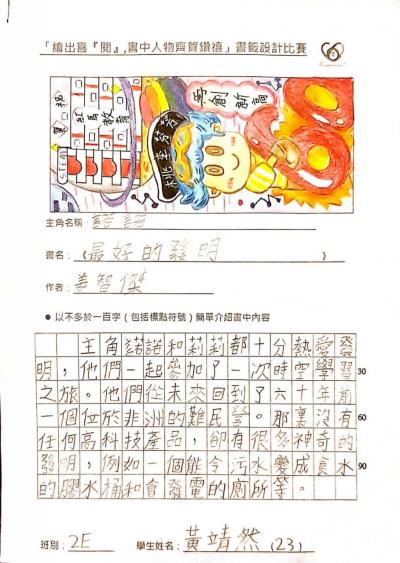 「繪出喜『閱』,書中人物齊賀鑽禧」書籤設計比賽
60
再創新高
桃李芬芳
社長教育
STEM
主角名稱 諾諾
書名:《最好的發明》
作者:姜智傑
● 以不多於一百字(包括標點符號)簡單介紹書中內容
主角諾諾和莉莉都十分熱愛發
明,他們一起參加了一次時空學習 30
之旅。他們從未來回到了六十年前
一個位於非洲的難民營。那裏沒有 60
任何高科技產品,卻有很多神奇的
發明,例如一個能令污水變成食水 90
的膠水桶和會發電的廁所等。
班別:2E 學生姓名:黃靖然(23)